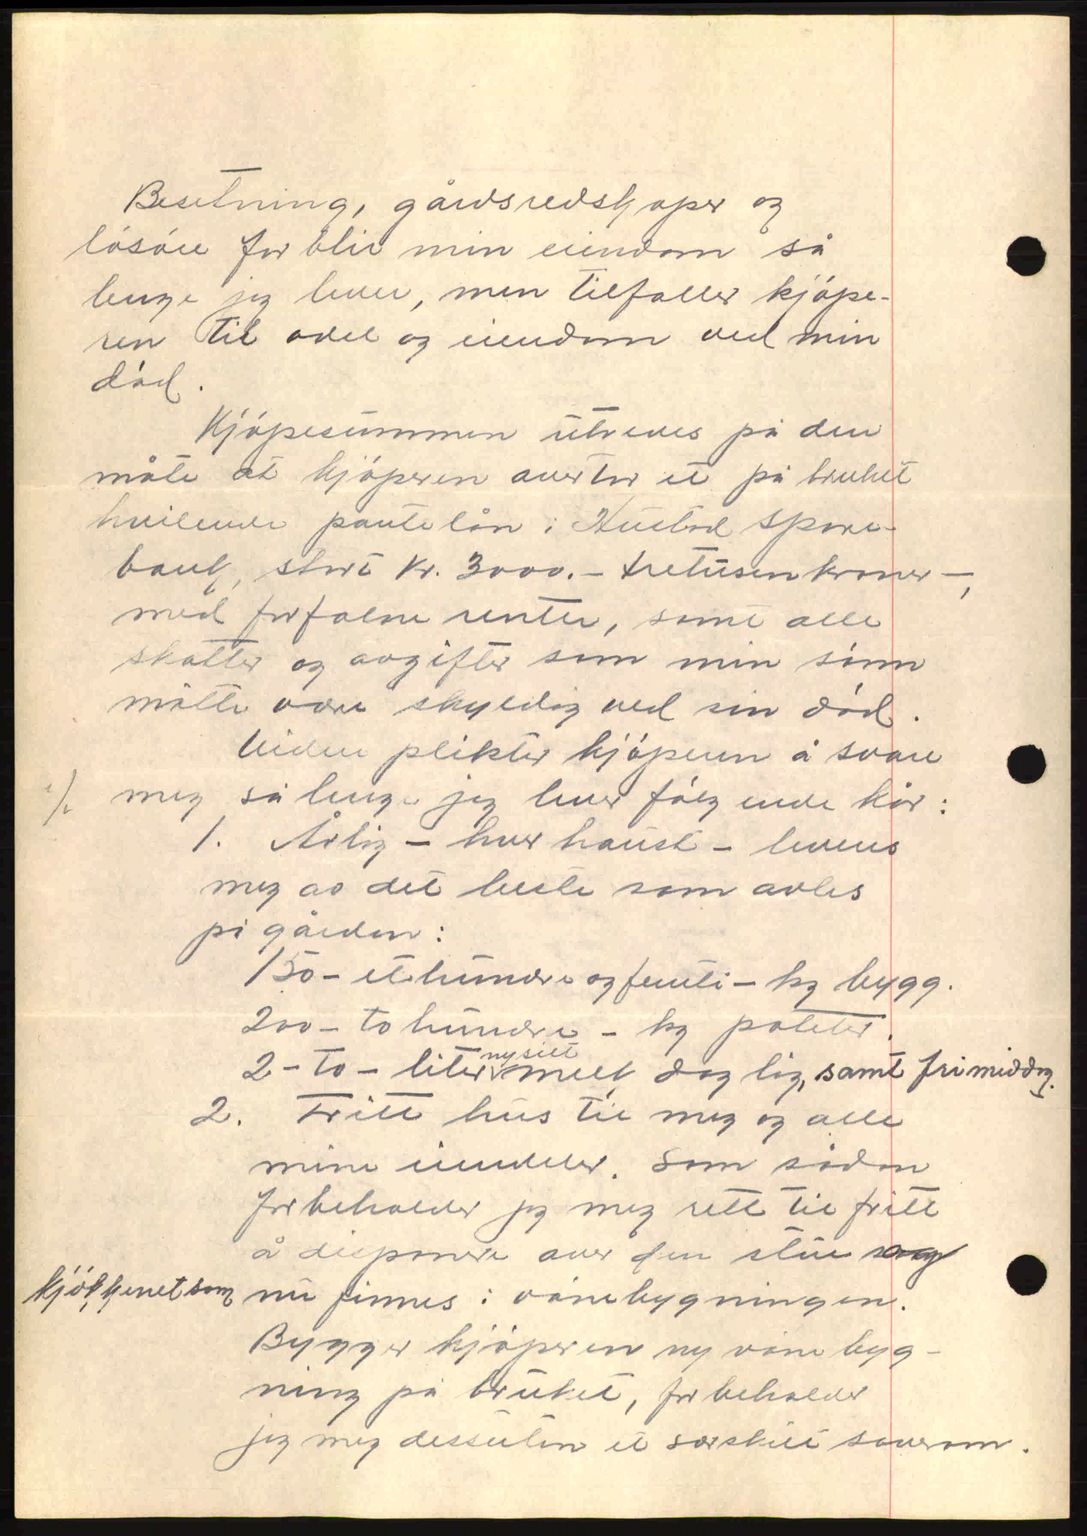 Besetning, gårdsredskaper og
lösöre forblir min eiendom så
lenge jeg lever, men tilfaller kjöpe-
ren til odel og eiendom ved min
död.
Kjöpesummen utredes på den
måte at kjöperen overtar et på bruket
hvilende pantelån i Hustad Spare-
bank, stort kr. 3000.- tretusenkroner -,
med forfalne renter, samt alle
skatter og avgifter som min sönn
måtte være skyldig ved sin död.
Videre plikter kjöperen å svare
meg så lenge jeg lever fölgende kår:
1. Årlig - hver haust - leveres
meg av det beste som avles
på gården:
150 - ethundre og femti - kg bygg.
200 - tohundre - kg poteter.
2 - to - liter nysilt melk daglig, samt fri middag.
2. Fritt hus til meg og alle
mine eiendeler. Som sådan
forbeholder jeg meg rett til fritt
å disponere over den stue og
kjökkenet som nu finnes i vånebygningen.
Bygger kjöperen ny vånebyg-
ning på bruket, forbeholder
jeg meg dessuten et særskilt soverom.